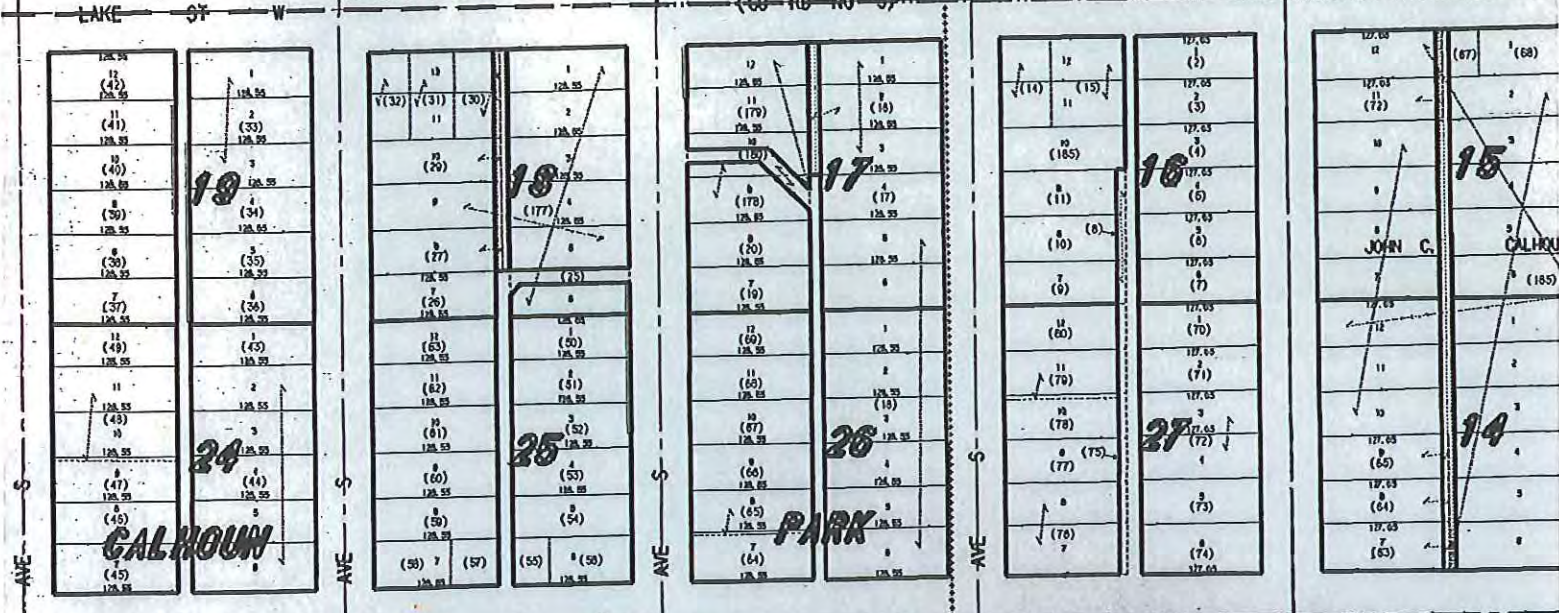 LAKE ST W
(CO RD NO 3)
128.55
12
(42)
128.55
11
(41)
128.55
10
(40)
(39)
128.55
(38)
128.55
7
(37)
128.55
1
128.55
2
(33)
128.55
3
128.55
4
(34)
128.55
5
(35)
128.55
6
(36)
128.55
19
12
(49)
128.55
11
128.55
(48)
10
128.55
9
(47)
128.55
8
(46)
7
(45)
128.55
1
(43)
128.55
2
128.55
3
128.55
4
(44)
128.55
5
6
24
CALHOUN
12
(32)
(31)
(30)
11
10
(29)
9
8
(27)
128.55
7
(26)
128.55
1
128.55
2
128.55
3
128.55
4
(177)
128.55
5
(25)
6
128.55
18
12
(63)
128.55
11
(62)
128.55
10
(61)
128.55
9
(60)
128.55
8
(59)
128.55
(58) 7
(57)
128.55
1
(50)
128.55
2
(51)
128.55
3
(52)
128.55
4
(53)
128.55
5
(54)
(55)
6 (56)
128.55
25
12
128.55
11
(179)
128.55
10
(180)
9
(178)
128.55
8
(20)
128.55
7
(19)
128.55
1
128.55
2
(16)
128.55
3
128.55
4
(17)
128.55
5
128.55
6
17
12
(69)
128.55
11
(68)
128.55
10
(67)
128.55
9
(66)
128.55
8
(65)
128.55
7
(64)
128.55
1
128.55
2
128.55
(18)
3
128.55
4
128.55
5
128.55
6
128.55
26
PARK
12
(14)
(15)
11
10
(185)
9
(11)
8
(10)
(8)
7
(9)
127.65
1
(2)
127.65
2
(3)
127.65
3
(4)
127.65
4
(5)
127.65
5
(6)
127.65
6
(7)
127.65
16
12
(80)
11
(79)
10
(78)
9
(77)
(75)
8
(76)
7
1
(70)
127.65
2
(71)
127.65
3
127.65
(72)
4
5
(73)
6
(74)
127.65
27
127.65
12
127.65
11
(72)
10
9
8
7
127.65
(67)
1
(68)
2
3
5
6
(185)
15
JOHN C. CALHOU
12
11
10
127.65
9
(65)
127.65
8
(64)
127.65
7
(63)
1
2
3
4
5
6
14
AVE S
AVE S
AVE S
AVE S